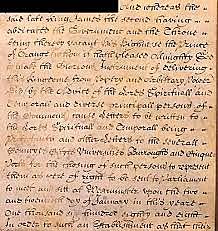 And whereas the
said late King James the second haveing
abdicated the Government and the Throne
being thereby vacant His Highnesse the Prince
of Orange (whom it hath pleased Almighty God
to make the Glorious Instrument of delivering
this Kingdome from Popery and Arbitrary Power
did by the Advice of the Lords Spirituall and
Temporall and diverse principall persons of
the Commons cause Letters to be written to
the Lords Spirituall and Temporall being
Protestants and other Letters to the severall
Countyes Cityes Universities Burroughs and Cinque
Ports for the chuseing of such persons to represent
them as were of right to be sent to Parliament
to meet and sitt at Westminster upon the two
and twentieth day of January in this yeare
One thousand six hundred eighty and eight
in order to such an Establishment as that their